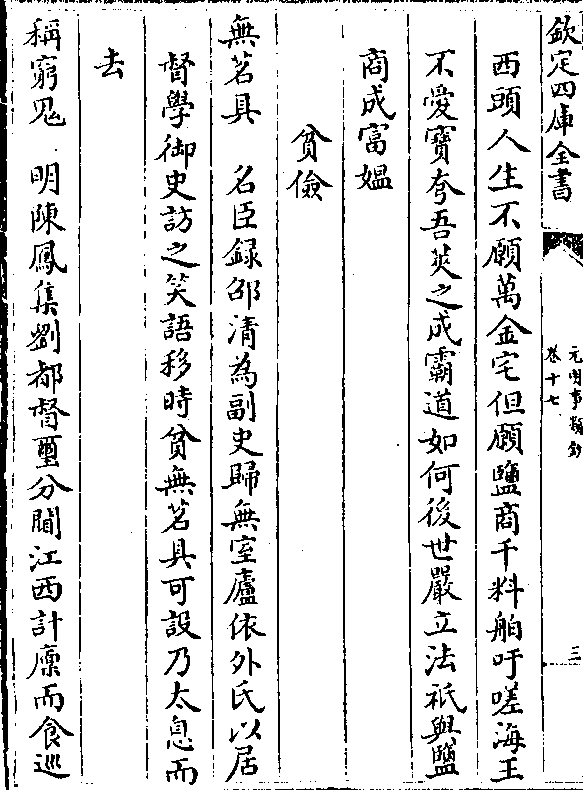 欽定四庫全書
元明事類鈔
卷十七
三
西頭人生不願萬金宅但願鹽商千料舶吁嗟海王
不愛寶夸吾莢之成霸道如何後世嚴立法祇與鹽
商成富媼
貧儉
無茗具　名臣録邵清為副史歸無室廬依外氏以居
督學御史訪之笑語移時貧無茗具可設乃太息而
去
稱窮鬼　明陳鳳集劉都督璽分閫江西計廩而食巡